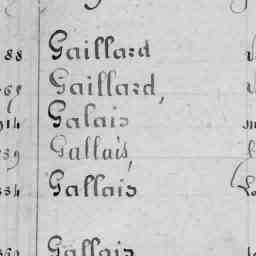 88 Gaillard
69 Gaillard,
914 Galais
239 Gallais,
334 Gallais
Gallais